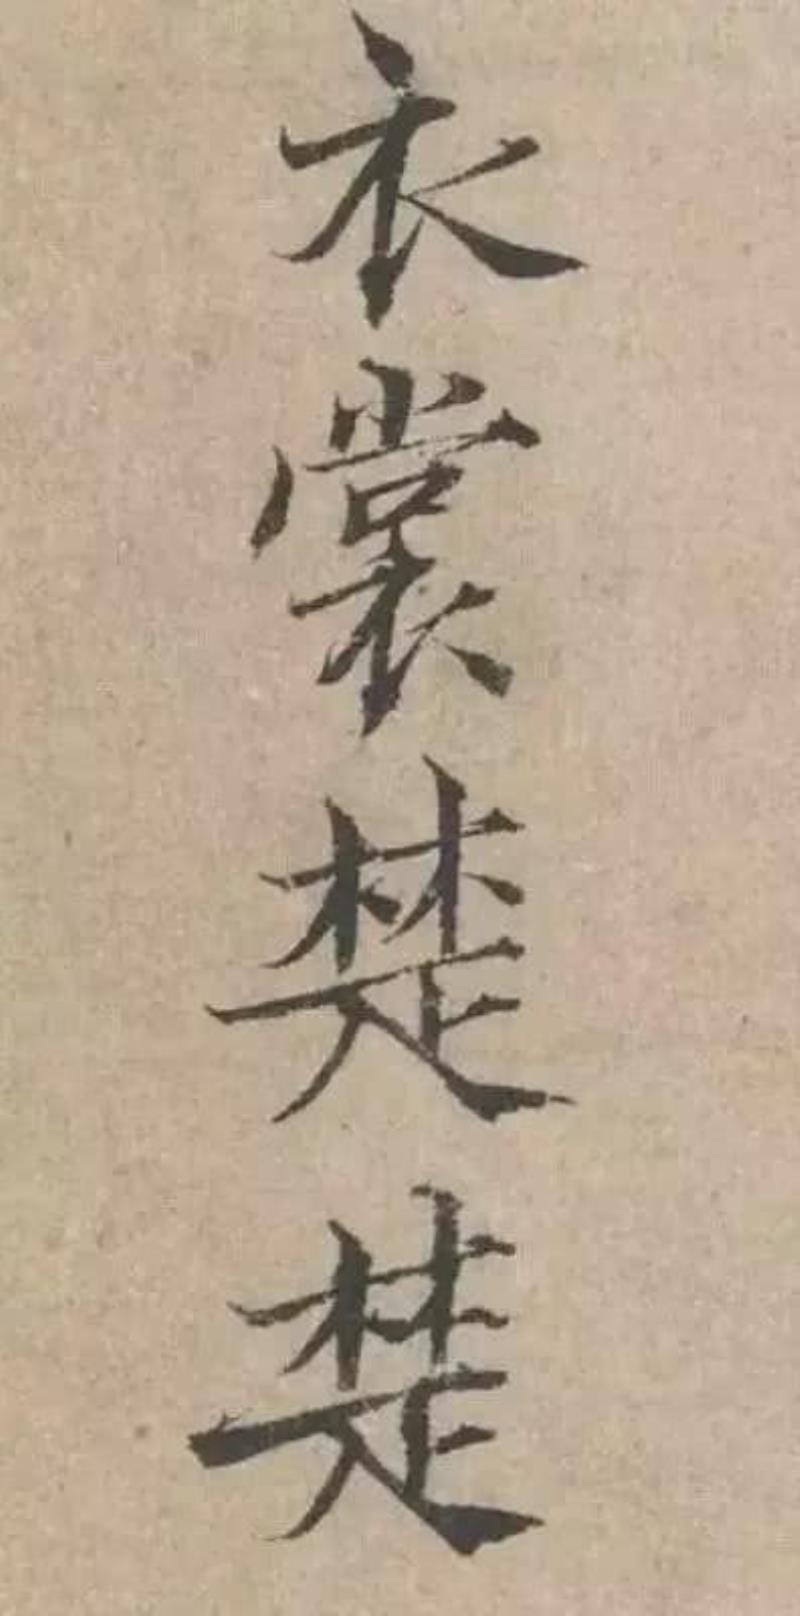 衣裳楚楚